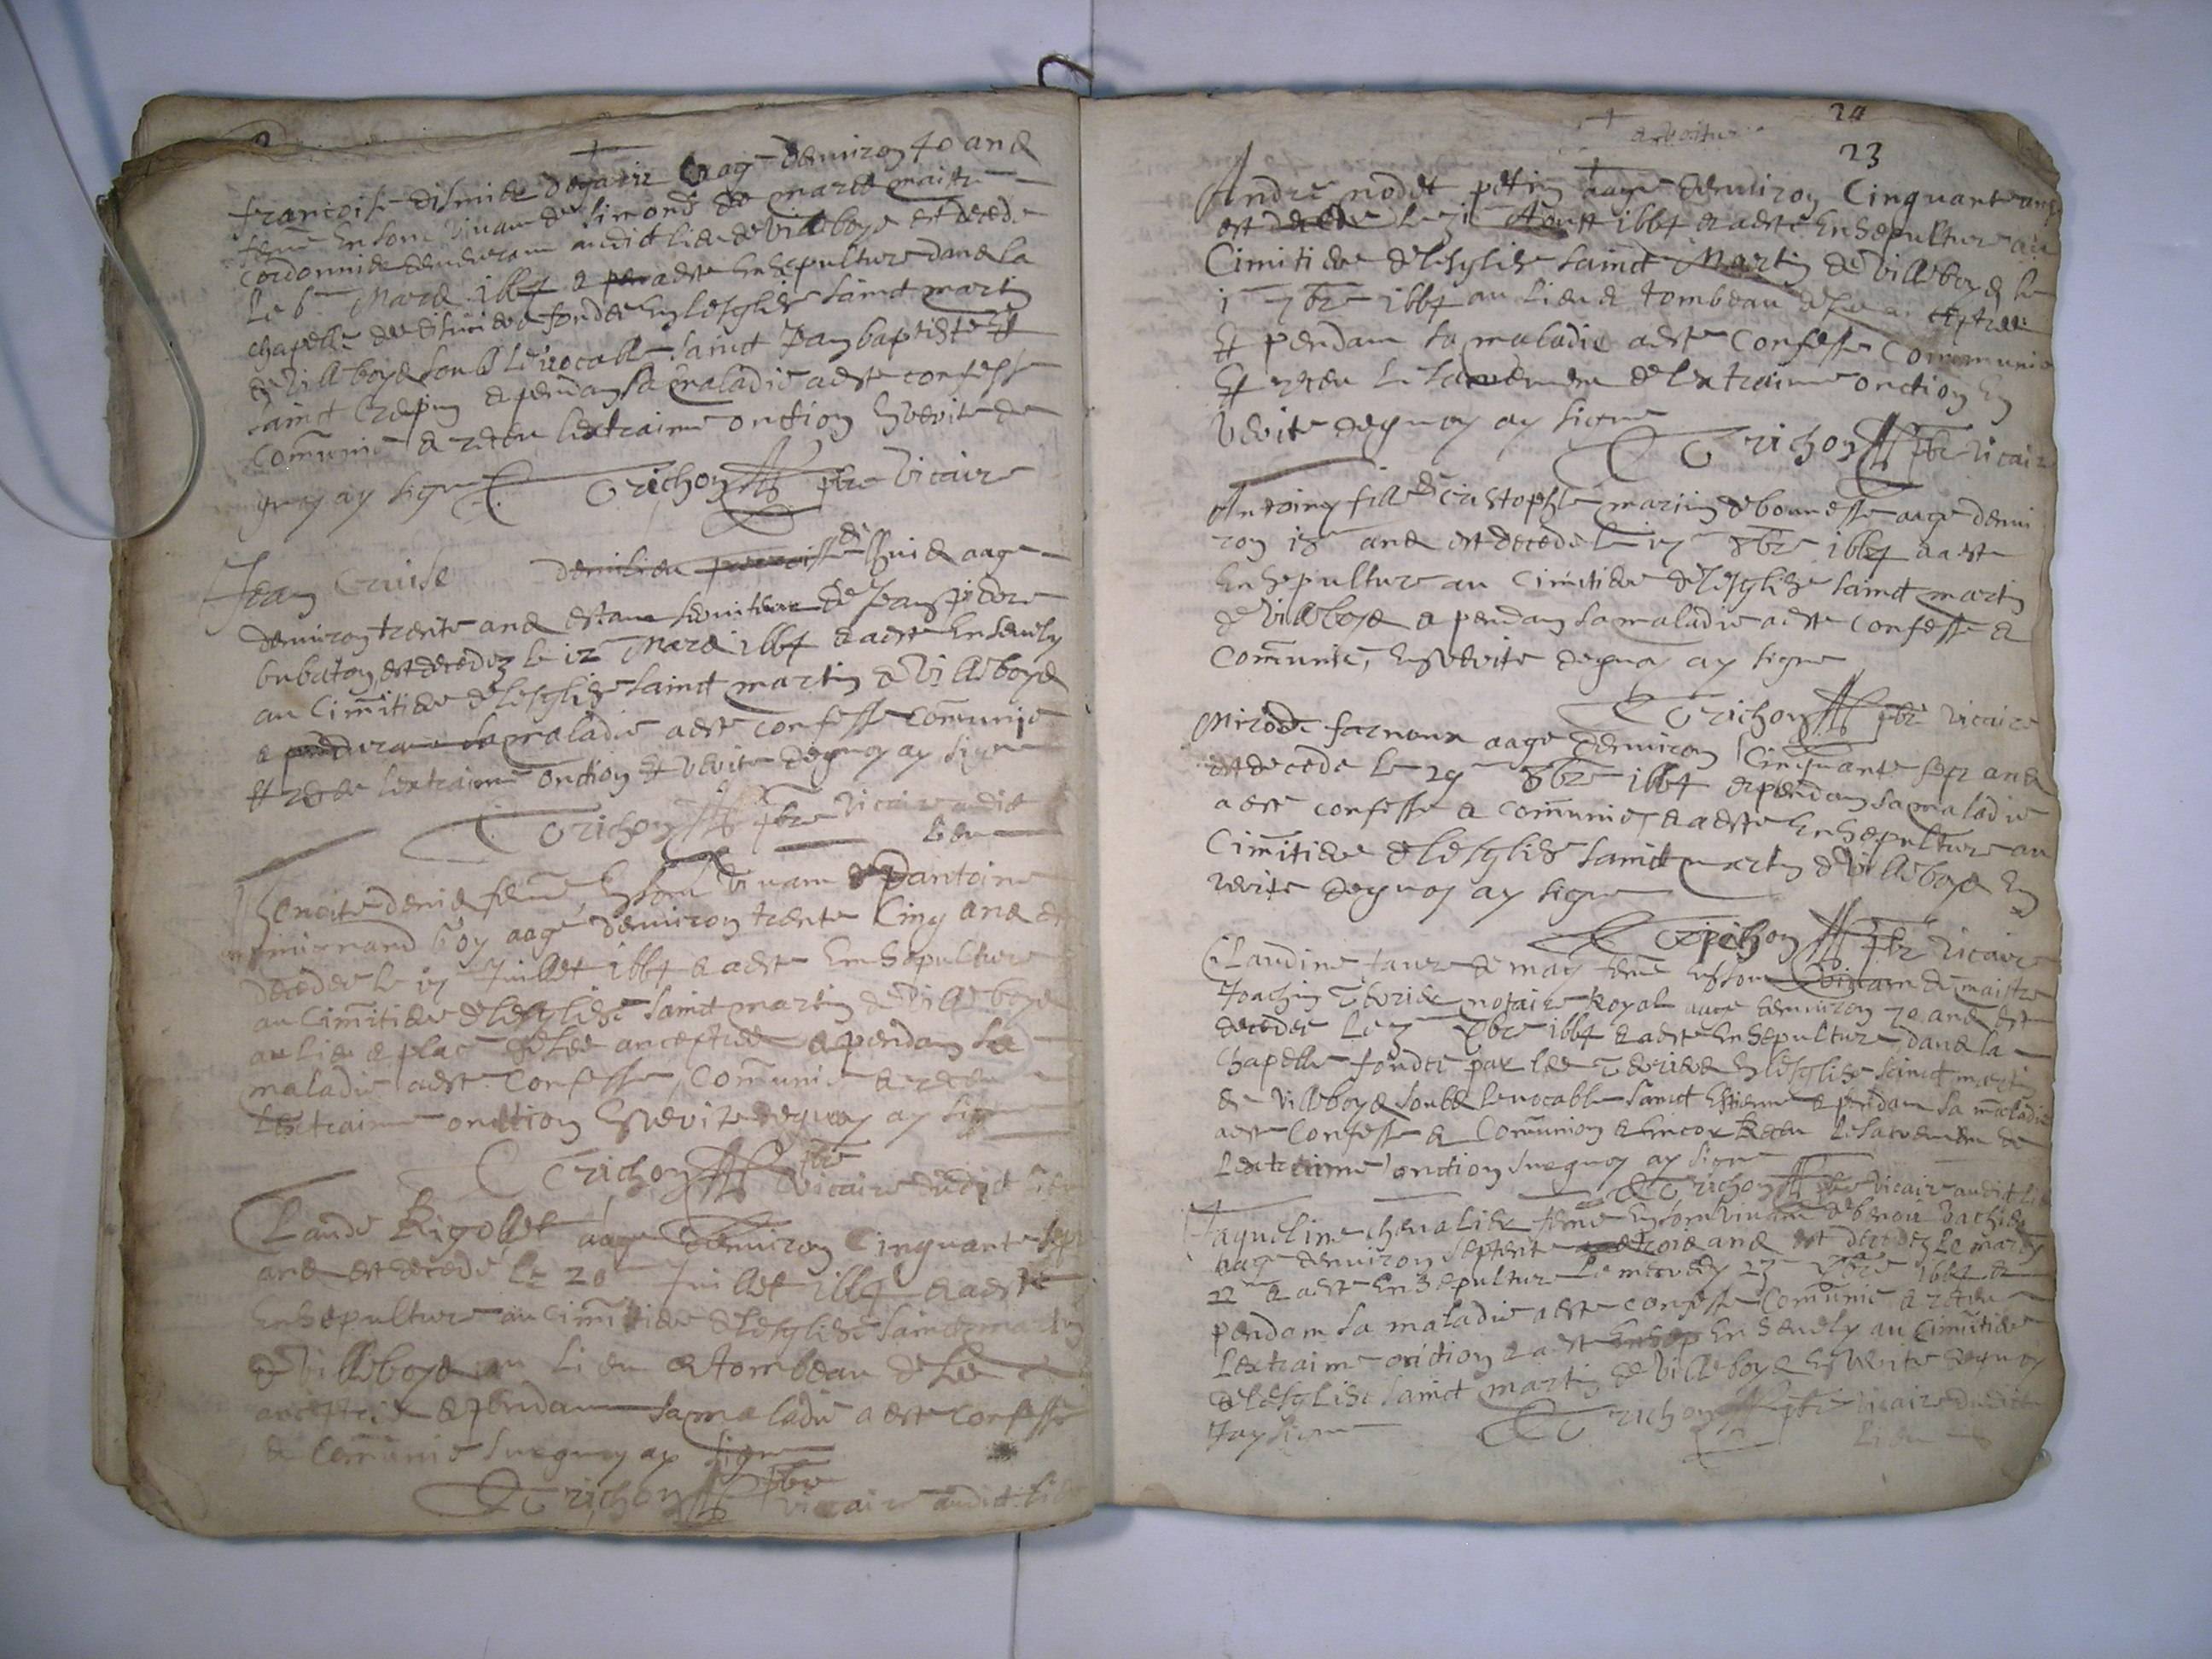 francoise disnier aage denuiron 40 ans
feme en son viuant de simond de mars maistre
cordonnier demeurant audict lieu de villeboys est decede
le 6 mars 1664 et a este ensepulture dans la
chapelle des fondee en lesglise sainct martin
de villeboys soubs le vocable sainct Jean baptiste Et
sainct Crepin et pendant sa maladie a este confesse
Communie et receu lextraime onction En verite de
quoy ay signe Trichon pbre vicaire
Jean Cruise aage
denuiron trente ans estant seruiteur de Jean
est decedez le 12 Mars 1664 et a este Enseuely
au Cimitiere de lesglise sainct martin de villeboys
et pendant sa maladie a este confesse communie
Et receu lextraime onction Et verite dequoy ay signe
Trichon pbre vicaire audict
lieu
Benoite denis feme En son viuant dantoine
aage denuiron trente Cinq ans est
decedee le 17 Juillet 1664 et a este Ensepulture
au Cimitiere de lesglise sainct martin de villeboys
au lieu et place de ses anceptres et pendant sa
maladie a este Confesse Communie et receu
Lextraime onction En verite dequoy ay signe
Trichon pbre
vicaire dudict lieu
Claude Rigollet aage denuiron Cinquante sept
ans est decede le 20 Juillet 1664 et a este
Ensepulture au Cimitiere de lesglise sainct martin
de villeboys au lieu et tombeau de ses
anceptres et pendant sa maladie a este Confesse
et Communie surquoy ay signe
Trichon pbre
vicaire audict lieu
24
23
Andre nodet petin aage denuiron Cinquante ans
est decede le 31 Aoust 1664 et a este Ensepulture au
Cimitiere de lesglise sainct Martin de villeboys le
1 7bre 1664 au lieu et tombeau de ses anceptres
Et pendant sa maladie a este Confesse Communie
Et receu le sacrement de lextraime onction En
verite dequoy ay signe
Trichon pbre vicaire
Antoiny fille de cristophle marin de bouuesse aage denui
ron 18 ans est decede le 17 8bre 1664 et a este
Ensepulture au Cimitiere de lesglise sainct martin
de villeboys et pendant sa maladie a este Confesse et
Communie, En verite dequoy ay signe
Trichon pbre vicaire
farnoux aage denuiron Cinquante sept ans
est decede le 29 8bre 1664 et pendant sa maladie
a este confesse et communie et a este Ensepulture au
Cimitiere de lesglise sainct martin de villeboys En
verite dequoy ay signe
Trichon pbre vicaire
Claudine faure de may feme En son viuant de maistre
Joachin notaire Royal aage denuiron 70 ans est
decedee le 3 Xbre 1664 et a este Ensepulture dans la
Chapelle fondee par les En lesglise sainct martin
de villeboys soubs le vocable sainct Estienne et pendant sa maladie
a este Confesse et Communion et Encor Receu le sacrement de
Lextraime onction surquoy ay signe
Trichon pbre vicaire audict lieu
Jaqueline cheualier feme En son viuant de benoit
aage denuiron septente ans est decedez le mardy
22 et a este Ensepulture le mecredy 23 Xbre 1664 et
pendant sa maladie a este confesse Communie et receu
Lextraime onction et a este Enseuely au Cimitiere
de lesglise sainct martin de villeboys En verite dequoy
Jay signe Trichon pbre vicaire dudict
lieu